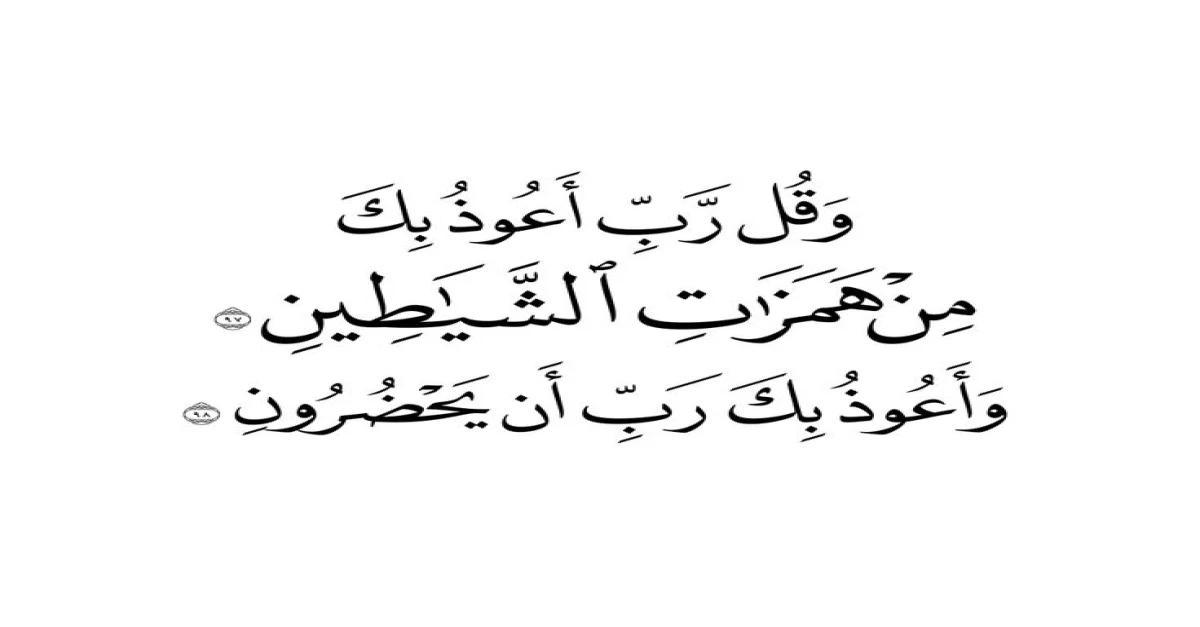 وَقُل رَّبِّ أَعُوذُ بِكَ
مِنْ هَمَزَٰتِ ٱلشَّيَٰطِينِ ٩٧
وَأَعُوذُ بِكَ رَبِّ أَن يَحْضُرُونِ ٩٨